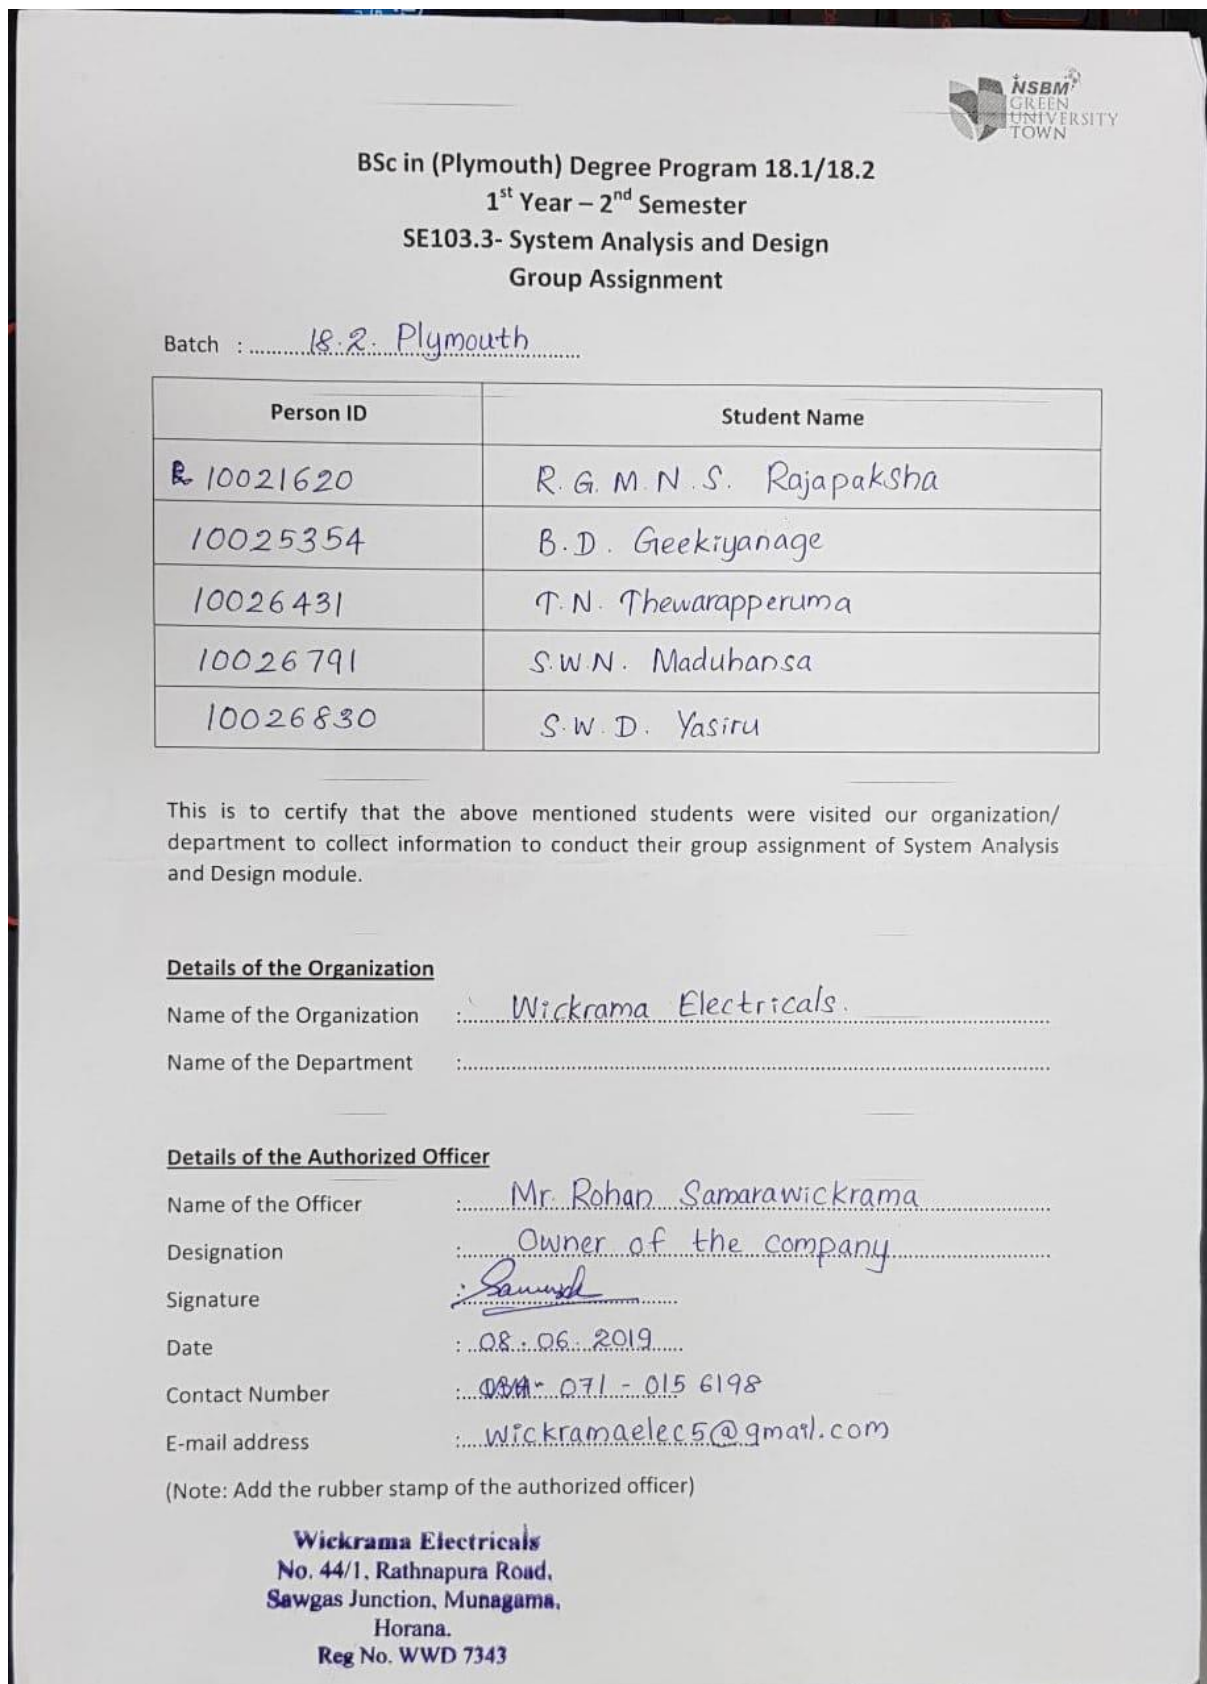 NSBM
GREEN
UNIVERSITY
TOWN
BSc in (Plymouth) Degree Program 18.1/18.2
1st Year – 2nd Semester
SE103.3- System Analysis and Design
Group Assignment
Batch : 18.2. Plymouth
Person ID Student Name
10021620 R.G.M.N.S. Rajapaksha
10025354 B.D. Geekiyanage
10026431 T.N. Thewarapperuma
10026791 S.W.N. Maduhansa
10026830 S.W.D. Yasiru
This is to certify that the above mentioned students were visited our organization/
department to collect information to conduct their group assignment of System Analysis
and Design module.
Details of the Organization
Name of the Organization : Wickrama Electricals.
Name of the Department :
Details of the Authorized Officer
Name of the Officer : Mr. Rohan Samarawickrama
Designation : Owner of the company
Signature :
Date : 08.06.2019
Contact Number : 071 - 015 6198
E-mail address : wickramaelec5@gmail.com
(Note: Add the rubber stamp of the authorized officer)
Wickrama Electricals
No. 44/1, Rathnapura Road,
Sawgas Junction, Munagama,
Horana.
Reg No. WWD 7343